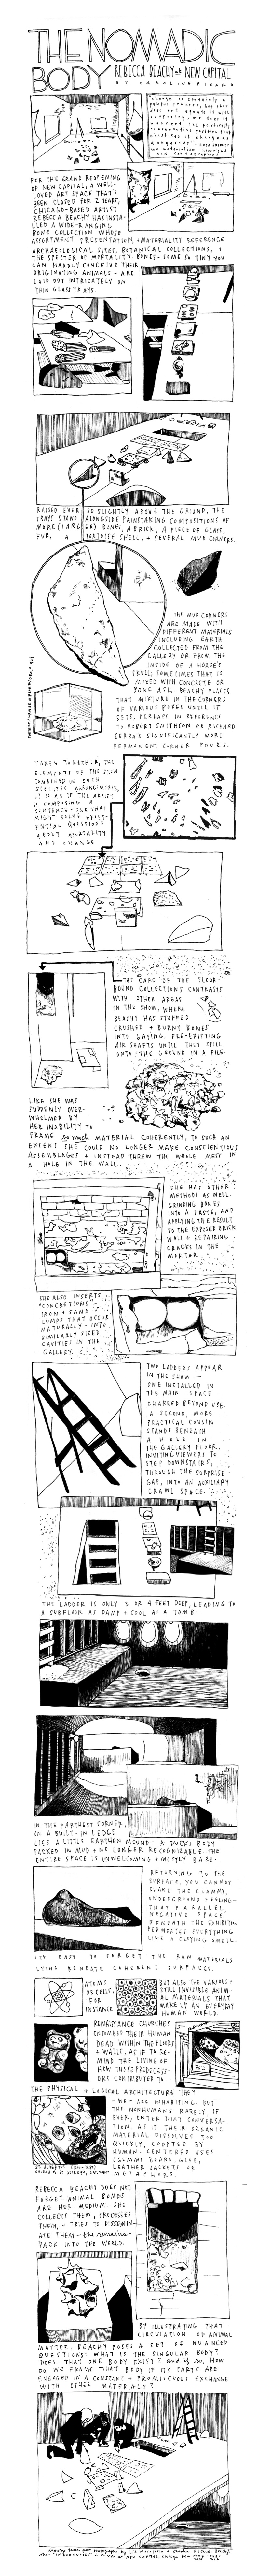 THE NOMADIC
BODY REBECCA BEACHY at NEW CAPITAL
BY CAROLINE PICARD
FOR THE GRAND REOPENING
OF NEW CAPITAL, A WELL-
LOVED ART SPACE THAT'S
BEEN CLOSED FOR 2 YEARS,
CHICAGO-BASED ARTIST
REBECCA BEACHY HAS INSTA-
LLED A WIDE-RANGING
BONE COLLECTION WHOSE
ASSORTMENT, PRESENTATION, + MATERIALITY REFERENCE
ARCHAEOLOGICAL SITES, BOTANICAL COLLECTIONS, +
THE SPECTER OF MORTALITY. BONES - SOME SO TINY YOU
CAN HARDLY CONCEIVE THEIR
ORIGINATING ANIMALS - ARE
LAID OUT INTRICATELY ON
THIN GLASS TRAYS.
RAISED EVER SO SLIGHTLY ABOVE THE GROUND, THE
TRAYS STAND ALONGSIDE PAINSTAKING COMPOSITIONS OF
MORE (LARGER) BONES, A BRICK, A PIECE OF GLASS,
FUR, A TORTOISE SHELL, + SEVERAL MUD CORNERS.
THE MUD CORNERS
ARE MADE WITH
DIFFERENT MATERIALS
INCLUDING EARTH
COLLECTED FROM THE
GALLERY OR FROM THE
INSIDE OF A HORSE'S
SKULL, SOMETIMES THAT IS
MIXED WITH CONCRETE OR
BONE ASH. BEACHY PLACES
THAT MIXTURE IN THE CORNERS
OF VARIOUS BOXES UNTIL IT
SETS, PERHAPS IN REFERENCE
TO ROBERT SMITHSON OR RICHARD
SERRA'S SIGNIFICANTLY MORE
PERMANENT CORNER POURS.
TAKEN TOGETHER, THE
ELEMENTS OF THE SHOW
COMBINED IN SUCH
SPECIFIC ARRANGEMENTS,
IT IS AS IF THE ARTIST
IS COMPOSING A
SENTENCE - ONE THAT
MIGHT SOLVE EXIST-
ENTIAL QUESTIONS
ABOUT MORTALITY
AND CHANGE
THE CARE OF THE FLOOR-
BOUND COLLECTIONS CONTRASTS
WITH OTHER AREAS
IN THE SHOW, WHERE
BEACHY HAS STUFFED
CRUSHED + BURNT BONES
INTO GAPING, PRE-EXISTING
AIR SHAFTS UNTIL THEY SPILL
ONTO THE GROUND IN A PILE.
LIKE SHE WAS
SUDDENLY OVER-
WHELMED BY
HER INABILITY TO
FRAME so much MATERIAL COHERENTLY, TO SUCH AN
EXTENT SHE COULD NO LONGER MAKE CONSCIENTIOUS
ASSEMBLAGES + INSTEAD THREW THE WHOLE MESS IN
A HOLE IN THE WALL.
SHE HAS OTHER
METHODS AS WELL.
GRINDING BONES
INTO A PASTE, AND
APPLYING THE RESULT
TO THE EXPOSED BRICK
WALL + REPAIRING
CRACKS IN THE
MORTAR.
SHE ALSO INSERTS
"CONCRETIONS"
IRON + SAND
LUMPS THAT OCCUR
NATURALLY - INTO
SIMILARLY SIZED
CAVITIES IN THE
GALLERY.
TWO LADDERS APPEAR
IN THE SHOW -
ONE INSTALLED IN
THE MAIN SPACE
CHARRED BEYOND USE.
A SECOND, MORE
PRACTICAL COUSIN
STANDS BENEATH
A HOLE IN
THE GALLERY FLOOR,
INVITING VIEWERS TO
STEP DOWNSTAIRS,
THROUGH THE SURPRISE
GAP, INTO AN AUXILIARY
CRAWL SPACE.
THE LADDER IS ONLY 3 OR 4 FEET DEEP, LEADING TO
A SUBFLOOR AS DAMP + COOL AS A TOMB.
IN THE FARTHEST CORNER,
ON A BUILT-IN LEDGE
LIES A LITTLE EARTHEN MOUND: A DUCK'S BODY
PACKED IN MUD + NO LONGER RECOGNIZABLE. THE
ENTIRE SPACE IS UNWELCOMING + MOSTLY BARE.
RETURNING TO THE
SURFACE, YOU CANNOT
SHAKE THE CLAMMY,
UNDERGROUND FEELING -
THAT PARALLEL,
NEGATIVE SPACE,
BENEATH THE EXHIBITION
PERMEATES EVERYTHING
LIKE A CLOYING SMELL.
IT'S EASY TO FORGET THE RAW MATERIALS
LYING BENEATH COHERENT SURFACES.
ATOMS
OR CELLS,
FOR
INSTANCE
BUT ALSO THE VARIOUS +
STILL INVISIBLE ANIM-
AL MATERIALS THAT
MAKE UP AN EVERYDAY
HUMAN WORLD.
RENAISSANCE CHURCHES
ENTOMBED THEIR HUMAN
DEAD WITHIN THE FLOORS
+ WALLS, AS IF TO RE-
MIND THE LIVING OF
HOW THOSE PREDECESS-
ORS CONTRIBUTED TO
THE PHYSICAL + LOGICAL ARCHITECTURE THEY
- WE - ARE INHABITING. BUT
THE NONHUMANS RARELY, IF
EVER, ENTER THAT CONVERSA-
TION. AS IF THEIR ORGANIC
MATERIAL DISSOLVES TOO
QUICKLY, COOPTED BY
HUMAN-CENTERED USES
(GUMMI BEARS, GLUE,
LEATHER JACKETS OR
METAPHORS.
REBECCA BEACHY DOES NOT
FORGET. ANIMAL BONES
ARE HER MEDIUM. SHE
COLLECTS THEM, PROCESSES
THEM, + TRIES TO DISSEMIN-
ATE THEM - the remains -
BACK INTO THE WORLD.
BY ILLUSTRATING THAT
CIRCULATION OF ANIMAL
MATTER, BEACHY POSES A SET OF NUANCED
QUESTIONS: WHAT IS THE SINGULAR BODY?
DOES THAT ONE BODY EXIST? and if so, HOW
DO WE FRAME THAT BODY IF ITS PARTS ARE
ENGAGED IN A CONSTANT + PROMISCUOUS EXCHANGE
WITH OTHER MATERIALS?